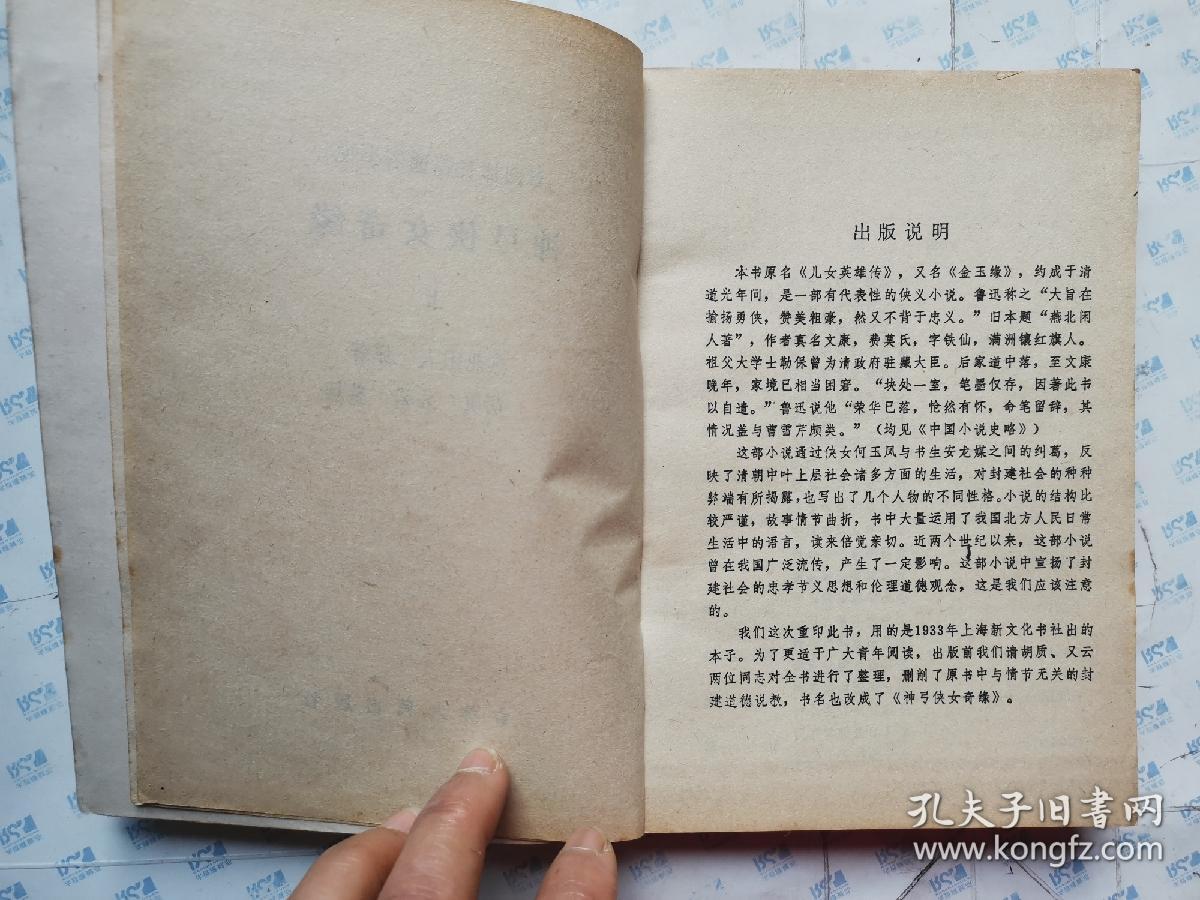 出版说明
本书原名《儿女英雄传》，又名《金玉缘》，约成于清
道光年间，是一部有代表性的侠义小说。鲁迅称之“大旨在
揄扬勇侠，赞美粗豪，然又不背于忠义。”旧本题“燕北闲
人著”，作者真名文康，费莫氏，字铁仙，满洲镶红旗人。
祖父大学士勒保曾为清政府驻藏大臣。后家道中落，至文康
晚年，家境已相当困窘。“块处一室，笔墨仅存，因著此书
以自遣。”鲁迅说他“荣华已落，怆然有怀，命笔留辞，其
情况盖与曹雪芹颇类。”（均见《中国小说史略》）
这部小说通过侠女何玉凤与书生安龙媒之间的纠葛，反
映了清朝中叶上层社会诸多方面的生活，对封建社会的种种
弊端有所揭露，也写出了几个人物的不同性格。小说的结构比
较严谨，故事情节曲折，书中大量运用了我国北方人民日常
生活中的语言，读来倍觉亲切。近两个世纪以来，这部小说
曾在我国广泛流传，产生了一定影响。这部小说中宣扬了封
建社会的忠孝节义思想和伦理道德观念，这是我们应该注意
的。
我们这次重印此书，用的是1933年上海新文化书社出的
本子。为了更适于广大青年阅读，出版前我们请胡质、又云
两位同志对全书进行了整理，删削了原书中与情节无关的封
建道德说教，书名也改成了《神弓侠女奇缘》。
孔夫子旧书网
www.kongfz.com